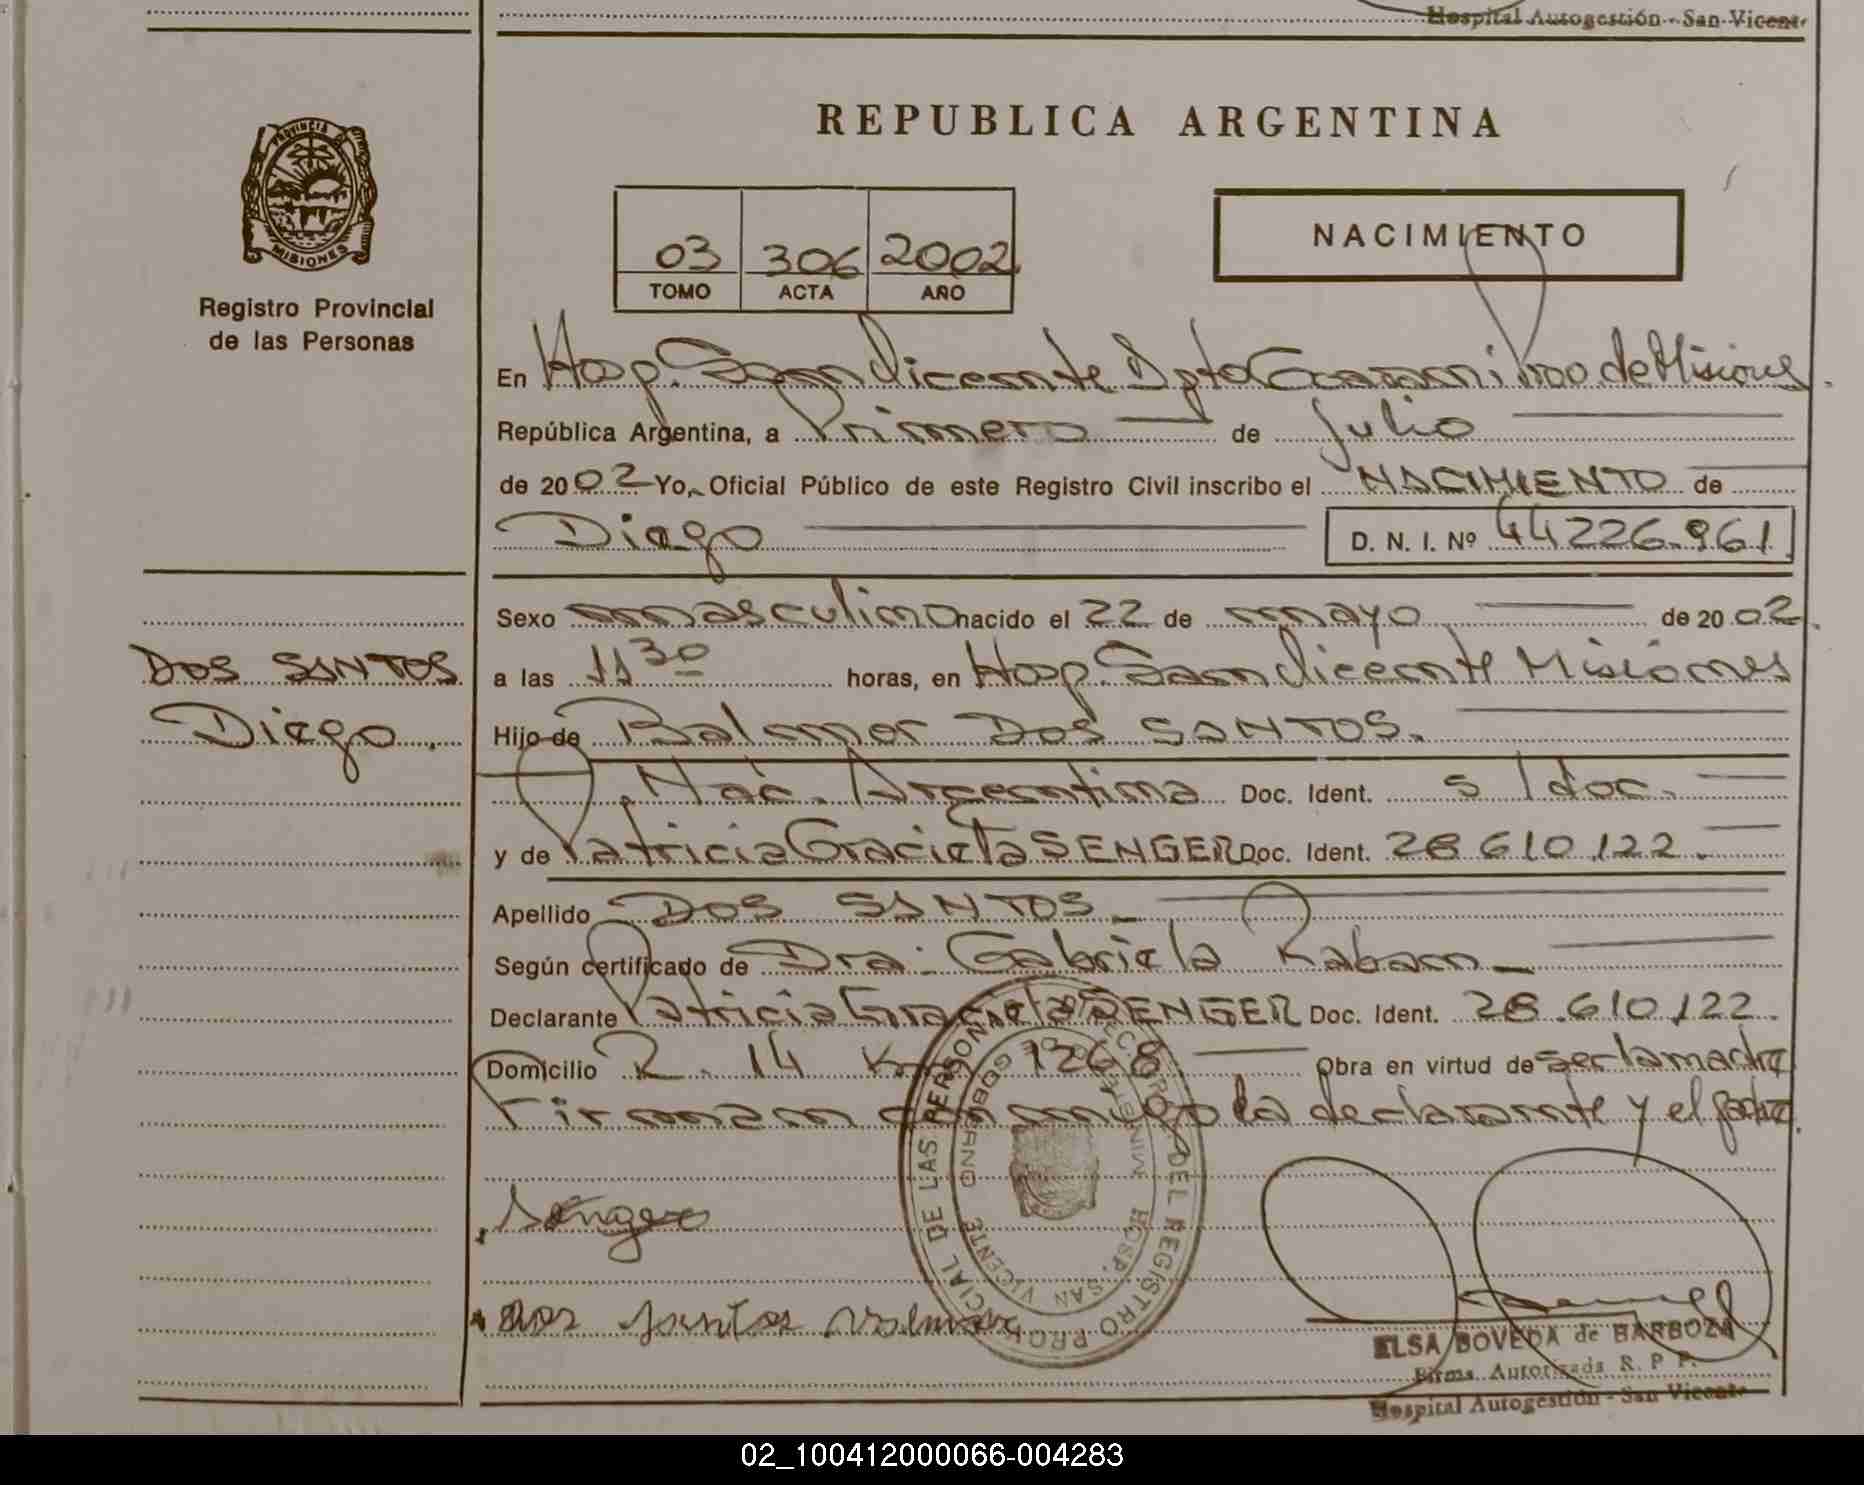 Hospital Autogestión - San Vicente
PROVINCIA DE
MISIONES
Registro Provincial
de las Personas
REPUBLICA ARGENTINA
03 306 2002
TOMO ACTA AÑO
NACIMIENTO
En Hosp. San Vicente Dpto Guaraní Pvo. de Misiones.
República Argentina, a Primero de Julio
de 2002 Yo, Oficial Público de este Registro Civil inscribo el NACIMIENTO de
Diego D. N. I. Nº 44226.961
Sexo masculino nacido el 22 de mayo de 2002.
DOS SANTOS
Diego.
a las 11 30 horas, en Hosp. San Vicente Misiones
Hijo de Balmor DOS SANTOS.
Nac. Argentina Doc. Ident. s/doc.
y de Patricia Graciela SENGER Doc. Ident. 28 610.122.
Apellido DOS SANTOS
Según certificado de Dra. Gabriela Raban
Declarante Patricia Graciela SENGER Doc. Ident. 28.610.122.
Domicilio R. 14 Km 1268 Obra en virtud de ser la madre
Firman conmigo la declarante y el padre.
Senger
dos santos
PROVINCIAL DE LAS PERSONAS
DEL REGISTRO
HOSP. SAN VICENTE
GOBIERNO
ELSA BOVEDA de BARBOZA
Firma Autorizada R. P. P.
Hospital Autogestión - San Vicente
02_100412000066-004283